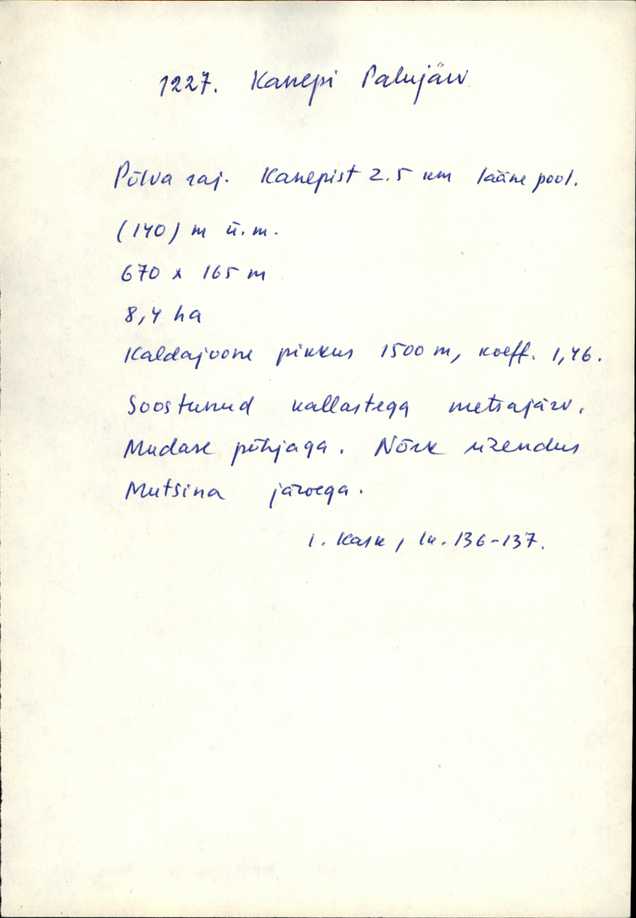 1227. Kanepi Palujärv
Põlva raj. Kanepist 2.5 km lääne pool.
(140) m ü.m.
670 x 165 m
8,4 ha
Kaldajoone pikkus 1500 m, koeff. 1,46.
Soostunud kallastega metsajärv.
Mudase põhjaga. Nõrk ühendus
Mutsina järvega.
I. Kask, lk. 136-137.